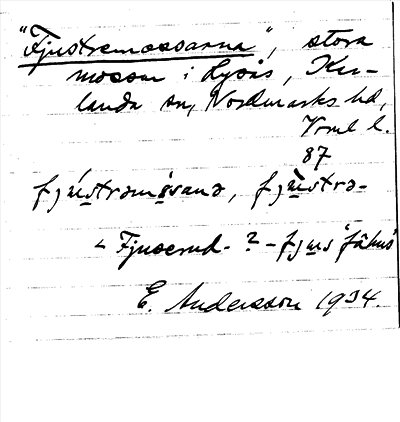 "Fjustremossarna", stora
mossar i Lysås, Kar-
landa sn, Nordmarks hd,
Vrml l.
87
fjústrəmòsanə, fjùstrə-
< Fjuserud- ? - fjus "fähus"
E. Andersson 1934.